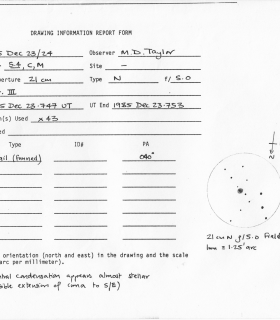 DRAWING INFORMATION REPORT FORM
5 Dec 23/24 Observer M.D. Taylor
S4, C, M Site —
perture 21cm Type N f/ 5.0
III
5 Dec 23.747 UT UT End 1985 Dec 23.753
n(s) Used x 43
ed
Type ID# PA
ail (fanned) 040°
N
21cm N f/5.0 Field
1mm = 1.25' arc
orientation (north and east) in the drawing and the scale
arc per millimeter).
tral condensation appears almost stellar
sible extension of coma to S/E)